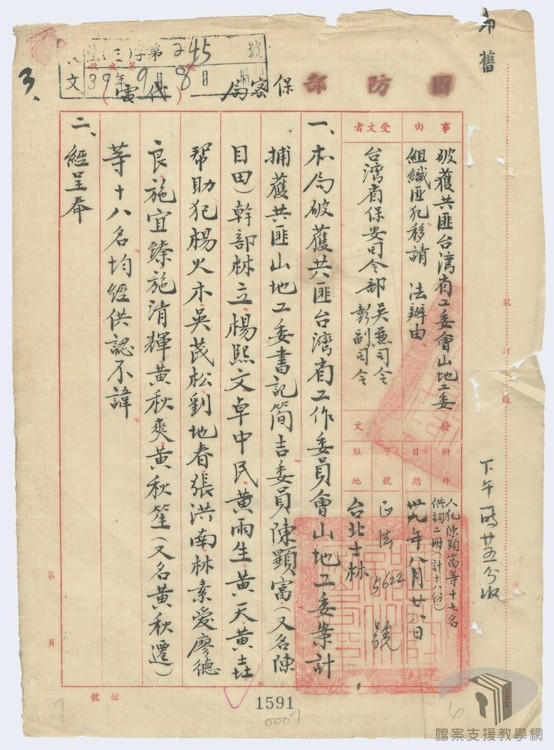 國防部
保密局代電
字第245號
39年9月8日
文
3、
事由
破獲共匪台灣省工委會山地工委
組織匪犯移請 法辦由
受文者
台灣省保安司令部 吳兼司令
彭副司令
附件
人犯陳顯富等十七名
供詞二冊(計十八份)
發文
日期
卅九年八月廿 日
字號
5622號
駐地
台北士林
一、本局破獲共匪台灣省工作委員會山地工委案計
捕獲共匪山地工委書記簡吉委員陳顯富(又名陳
目田)幹部林立楊熙文卓中民黃雨生黃天黃垚
幫助犯楊火木吳茂松劉地春張洪南林素愛廖德
良施宜臻施清輝黃秋爽黃秋笙(又名黃秋遷)
等十八名均經供認不諱
二、經呈奉
下午 時廿五分收
第 頁
檔號
1591
0007
7
6
檔案支援教學網